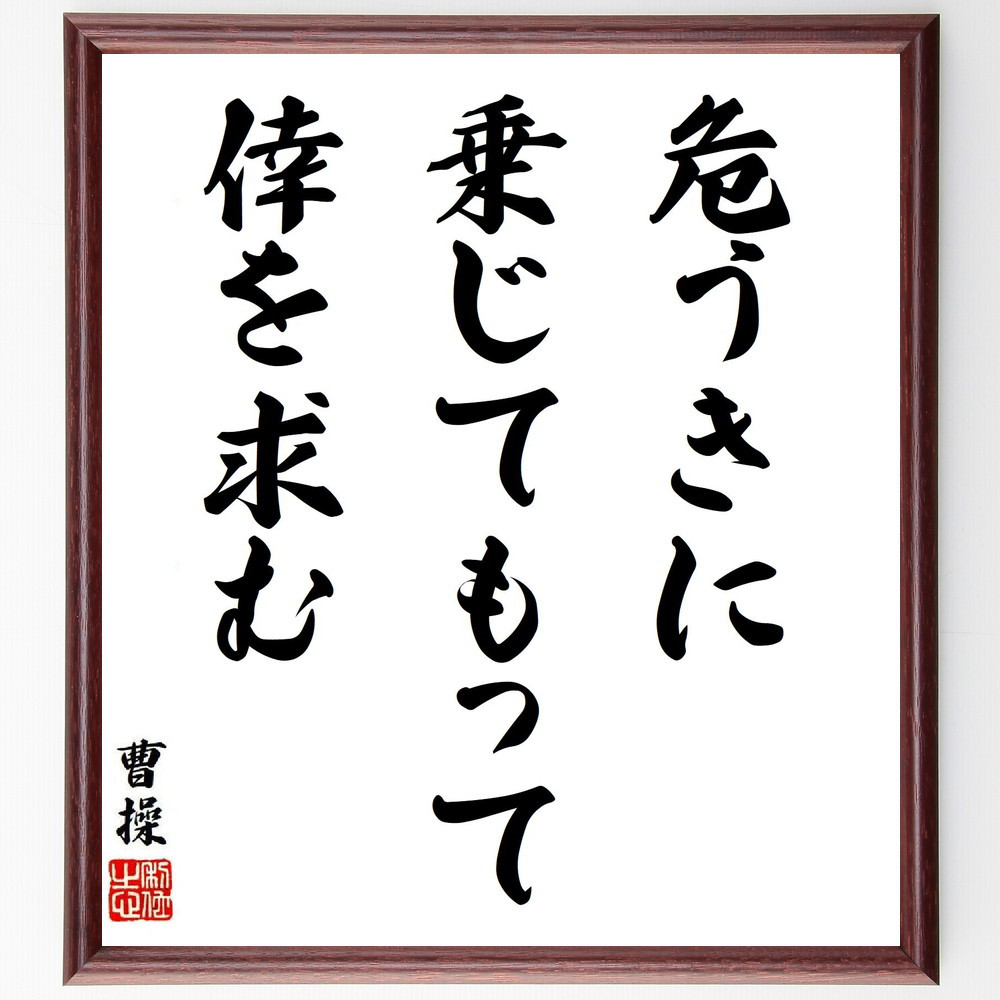 危うきに
乗じてもって
倖を求む
曹操